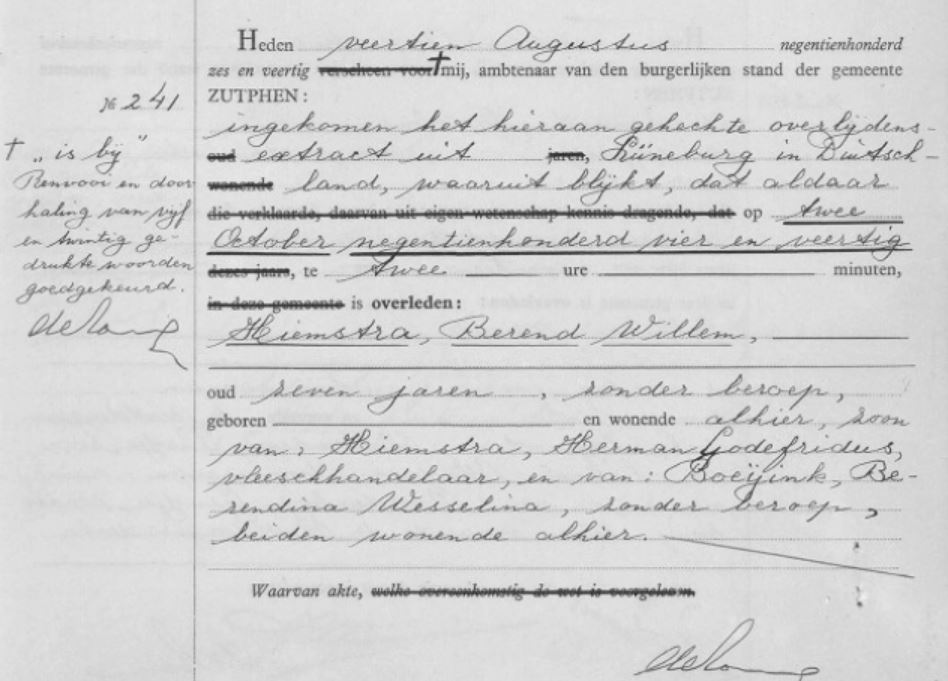 Heden veertien Augustus negentienhonderd
zes en veertig verscheen voor † mij, ambtenaar van den burgerlijken stand der gemeente
ZUTPHEN:
№ 241
† „is bij”
Renvooi en door-
haling van vijf
en twintig ge-
drukte woorden
goedgekeurd.
ingekomen het hieraan gehechte overlijdens-
oud extract uit jaren, Lüneburg in Duitsch-
wonende land, waaruit blijkt, dat aldaar
die verklaarde, daarvan uit eigen wetenschap kennis dragende, dat op twee
October negentienhonderd vier en veertig
dezes jaars, te twee ure minuten,
in deze gemeente is overleden:
Hiemstra, Berend Willem,
oud zeven jaren, zonder beroep,
geboren en wonende alhier, zoon
van: Hiemstra, Herman Godefridus,
vleeschhandelaar, en van: Boeijink, Be-
rendina Wesselina, zonder beroep,
beiden wonende alhier.
Waarvan akte, welke overeenkomstig de wet is voorgelezen.